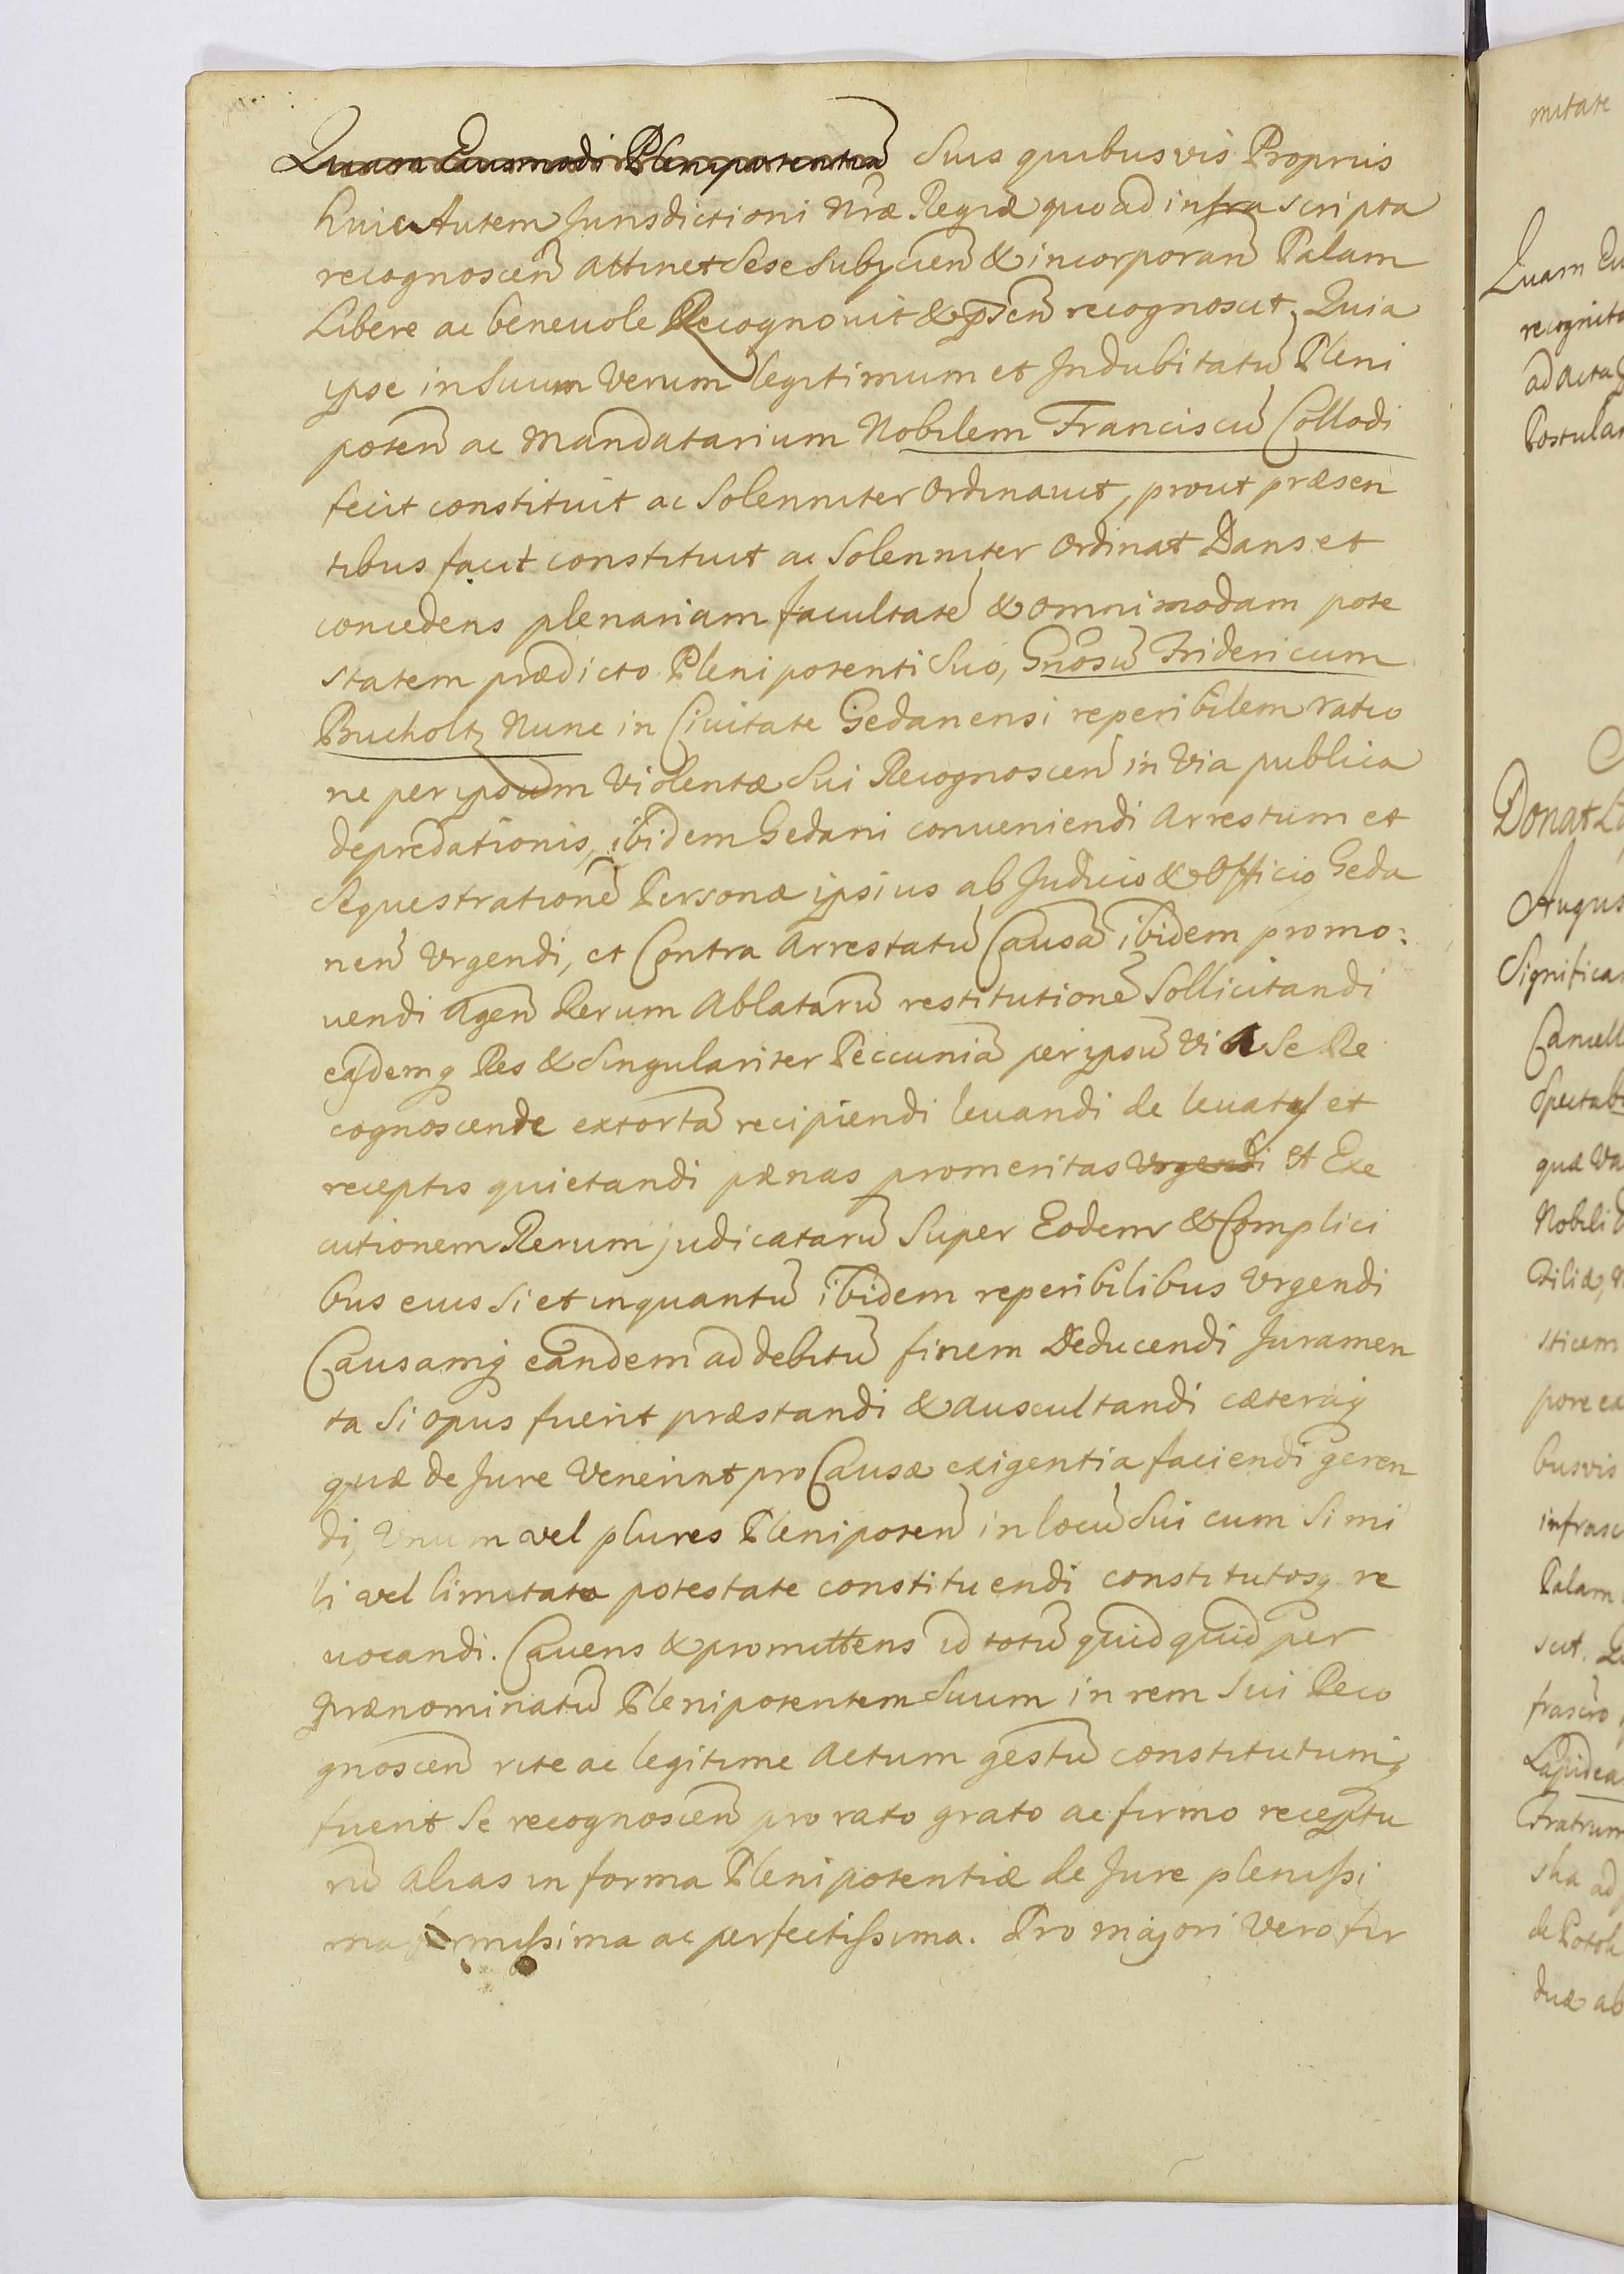 Quam Eiusmodi Plenipotentiã Suis quibusvis Propriis
huic Autem Jurisdictioni Nræ Regiæ quoad infrascripta
recognoscen̄ attinet Sese Subijcien̄ & incorporan̄ Palam
Libere ac beneuole Recognouit & p̄sen̄ recognoscit. Quia
ipse in Suum Verum legitimum et Indubitatũ Pleni
poten̄ ac Mandatarium Nobilem Franciscũ Collodi
fecit constituit ac Solenniter Ordinauit, prout præsen
tibus facit constituit ac Solenniter Ordinat Dans et
concedens plenariam facultatẽ & omnimodam pote
statem prædicto Plenipotenti Suo, Gnõsũ Fridericum
Bucholtz Nunc in Ciuitate Gedanensi reperibilem ratio
ne per ipsum Violentæ Sui Recognoscen̄ in Via publica
deprædationis, ibidem Gedani conueniendi Arrestum et
Sequestrationẽ Personæ ipsius ab Judicio & Officio Geda
nen̄ Vrgendi, et Contra Arrestatũ Causã ibidem promo:
uendi Agen̄ Rerum Ablatarũ restitutionẽ Sollicitandi
easdemq Res & Singulariter Peccuniã per ipsũ Vi a Se Re
cognoscende extortã recipiendi leuandi de leuatis et
receptis quietandi pænas promeritas Vrgendi et Exe
cutionem Rerum judicatarũ Super Eodem & Complici
bus eius Si et inquantũ ibidem reperibilibus Vrgendi
Causamq eandem ad debitũ finem Deducendi Juramen
ta Si opus fuerit præstandi & auscultandi cæteraq
quæ de Jure Venerint pro Causæ exigentia faciendi geren
di, Vnum vel plures Plenipoten̄ in locũ Sui cum Simi
li vel limitata potestate constituendi constitutosq re
uocandi. Cauens & promittens id totũ quidquid per
Prænominatũ Plenipotentem Suum in rem Sui Reco
gnoscen̄ rite ac legitime Actum gestũ constitutumq
fuerit Se recognoscen̄ pro rato grato ac firmo receptu
rũ alias in forma Plenipotentiæ de Jure plenissi
ma firmissima ac perfectissima. Pro majori Vero fir
mitate
Quam Eu
recognita
ad acta
Postulan
Donat
Augus
Significa
Cancell
Spectab
quæ Va
Nobili
sticem
pore ea
busvis
infrasc
Palam
scit.
Lapidea
Fratrum
ad
duæ ab